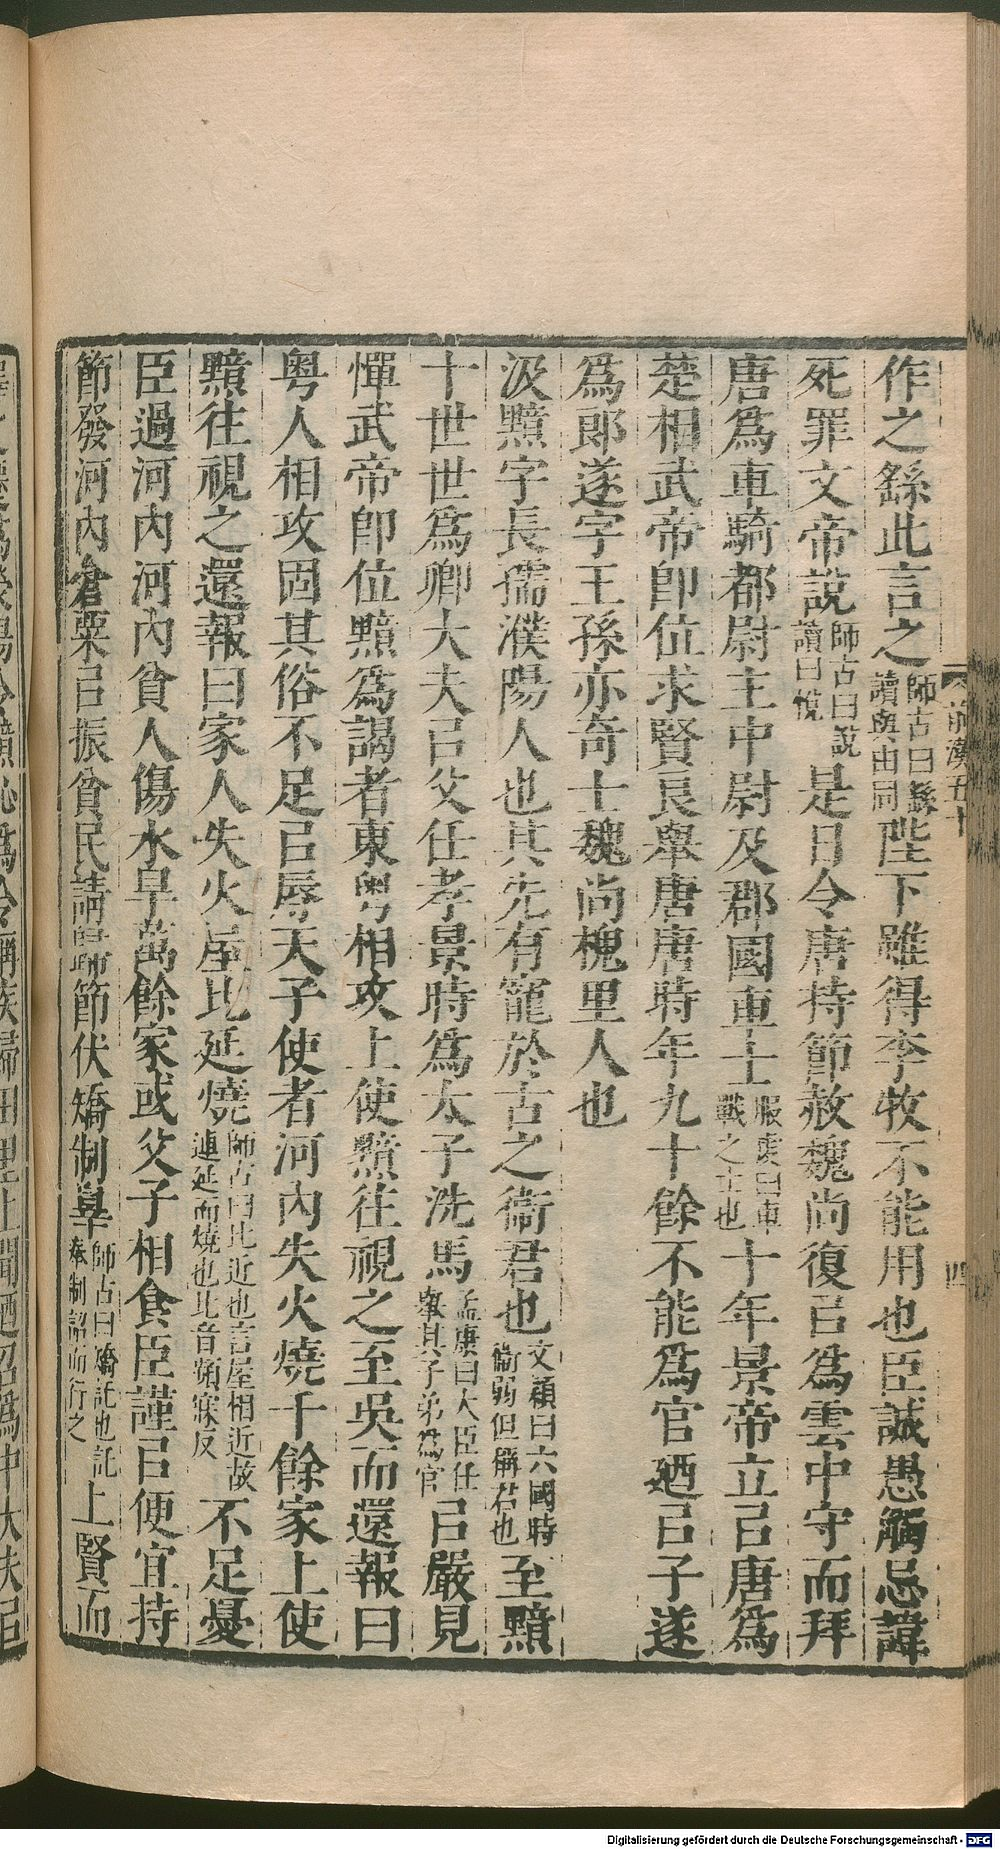 作之繇此言之師古曰繇讀與由同陛下雖得李牧不能用也臣誠愚觸忌諱
死罪文帝說師古曰說讀曰悅是日令唐持節赦魏尚復㠯爲雲中守而拜
唐爲車騎都尉主中尉及郡國車士服虔曰車戰之士也十年景帝立㠯唐爲
楚相武帝卽位求賢良舉唐唐時年九十餘不能爲官廼㠯子遂
爲郎遂字王孫亦奇士魏尚槐里人也
汲黯字長孺濮陽人也其先有寵於古之衞君也文穎曰六國時衞弱但稱君也至黯
十世世爲卿大夫㠯父任孝景時爲太子洗馬孟康曰大臣任舉其子弟爲官㠯嚴見
憚武帝卽位黯爲謁者東粵相攻上使黯往視之至吳而還報曰
粵人相攻固其俗不足㠯辱天子使者河內失火燒千餘家上使
黯往視之還報曰家人失火屋比延燒師古曰比近也言屋相近故連延而燒也比音頻寐反不足憂
臣過河內河內貧人傷水旱萬餘家或父子相食臣謹㠯便宜持
節發河內倉粟㠯振貧民請歸節伏矯制辠師古曰矯託也託奉制詔而行之上賢而
前漢五十
四
爲滎陽令黯恥爲令稱疾歸田里上聞廼召爲中大夫㠯
Digitalisierung gefördert durch die Deutsche Forschungsgemeinschaft - DFG